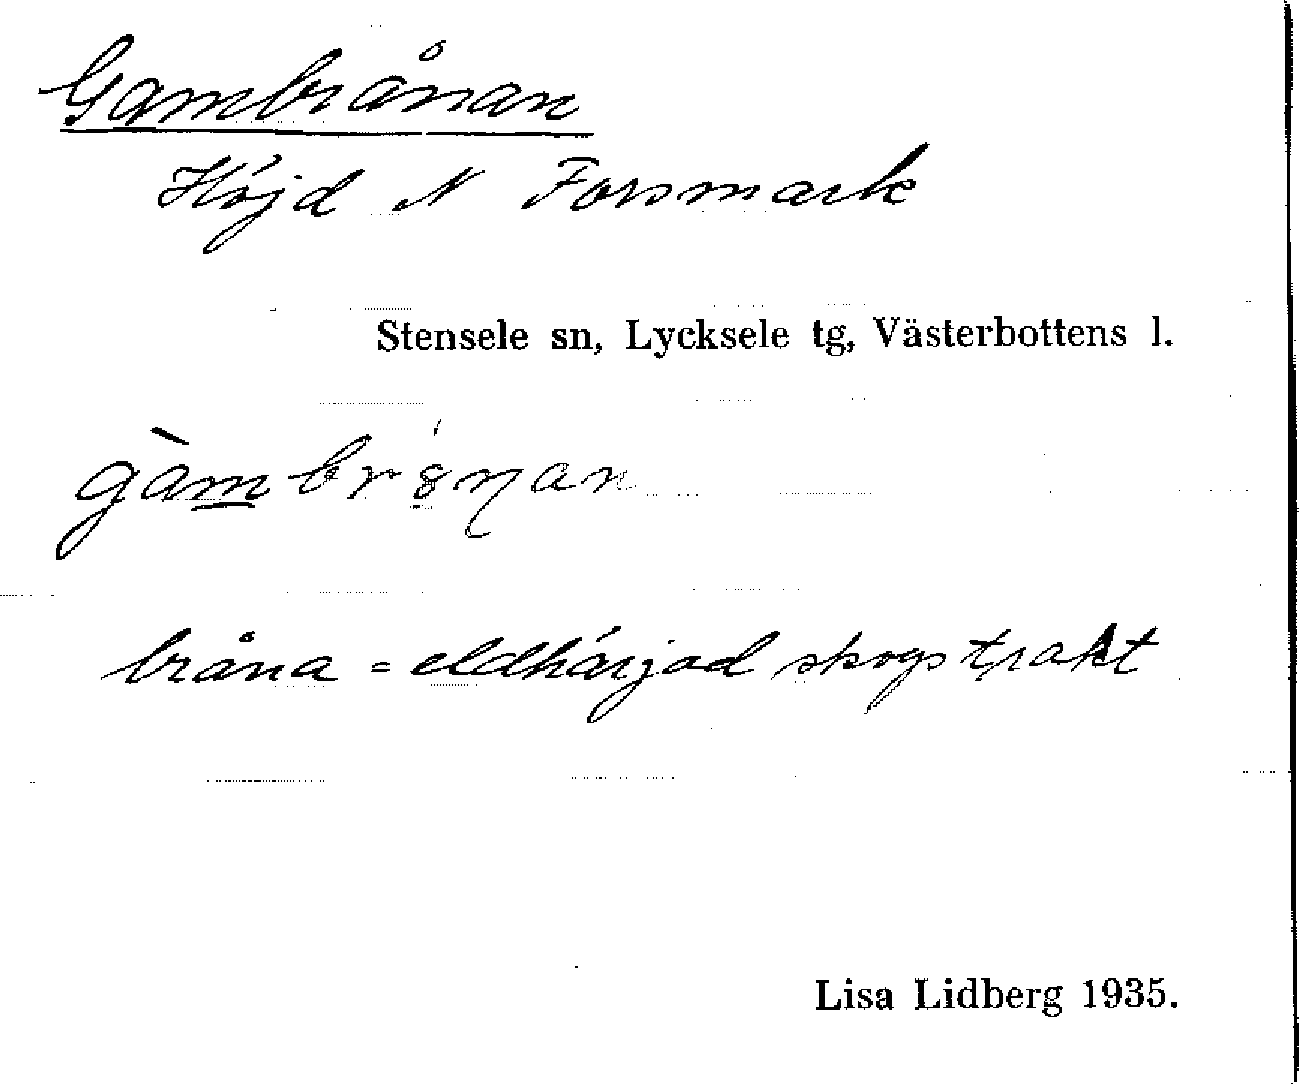 Gambrånan
Höjd N Forsmark
Stensele sn, Lycksele tg, Västerbottens l.
bråna = eldhärjad skogstrakt
Lisa Lidberg 1935.